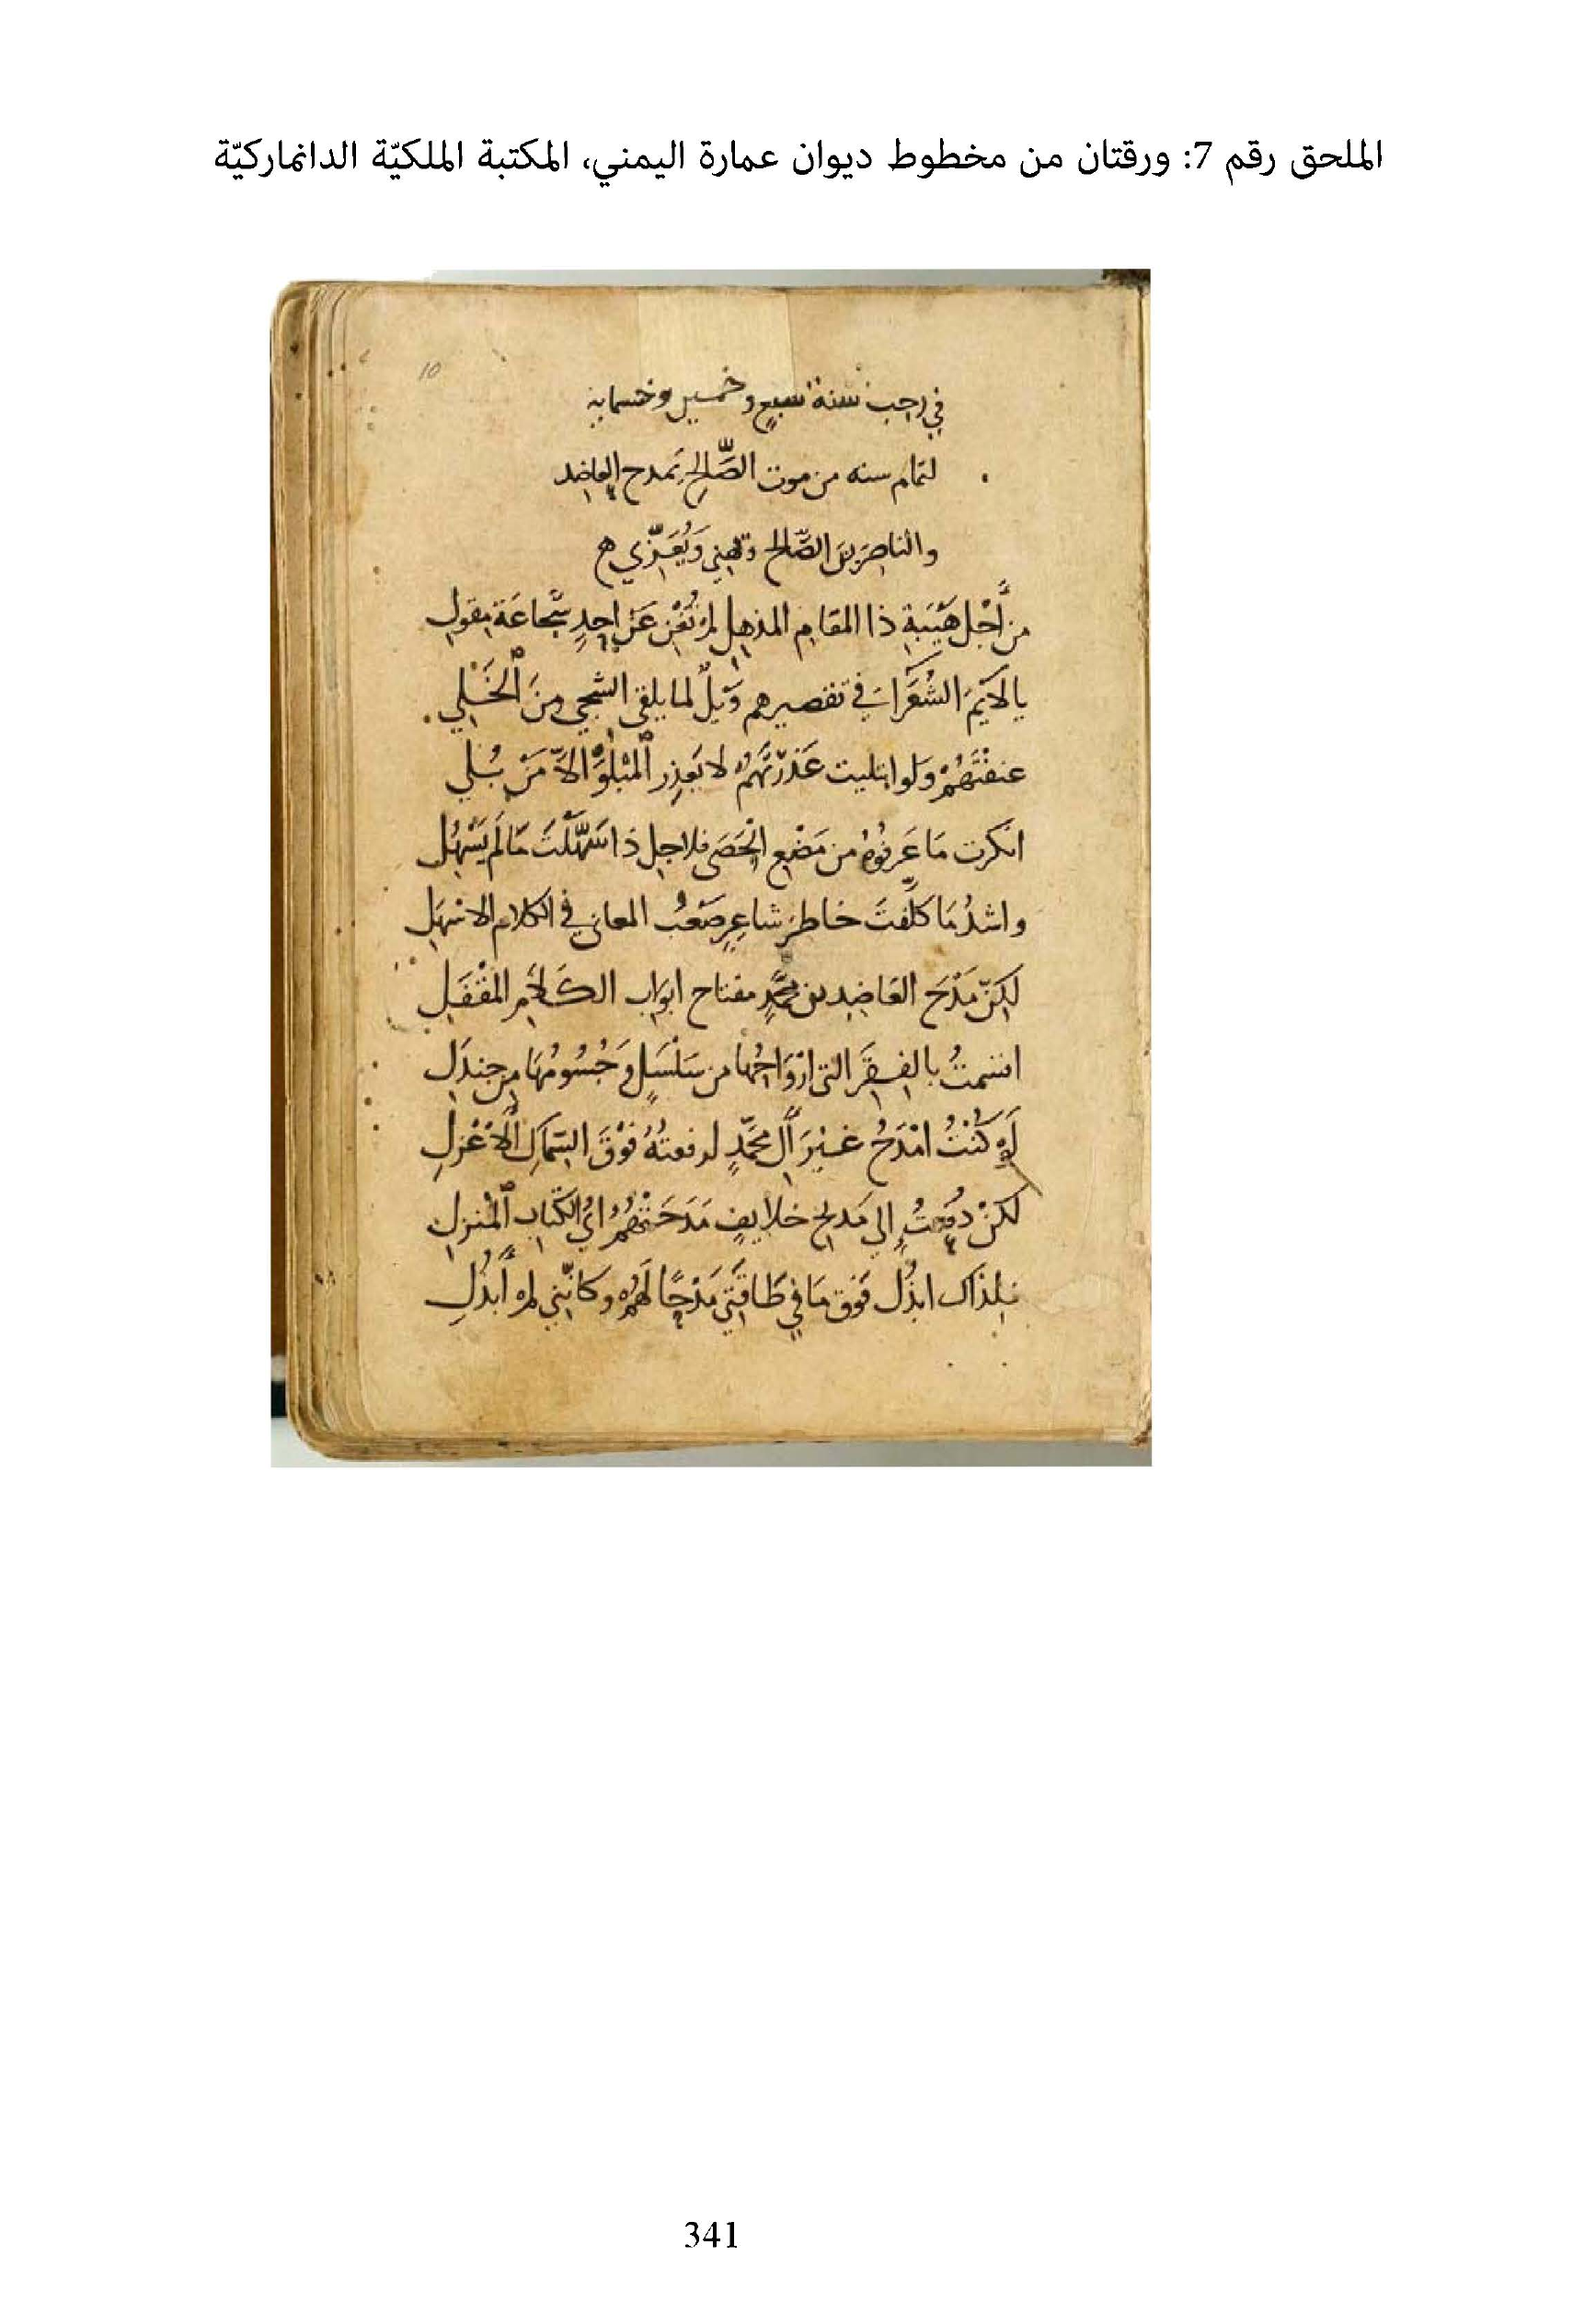 الملحق رقم 7: ورقتان من مخطوط ديوان عمارة اليمني، المكتبة الملكيّة الدانماركيّة
10
في رجب سنة سبع وخمسين وخمسمايه
لتمام سنه من موت الصَّالح يمدح العاضد
والناصر بن الصَّالح ويهني وَيُعَزّي
من أَجْل هَيْبَةِ ذا المقامِ المذهِل لمْ تُغْنِ عَنْ احدٍ شجاعَة مِقول
يا لايمَ الشُعَرَاءِ في تقصيرهم وَيلٌ لما يلقى الشجي مِنَ الخَلِي
عنفتَهُمْ ولو ابتليت عَذرْتَهُمْ لا يَعذِر المَبْلوَّ الاّ مَنْ بُلي
انكرت مَا عَرفُوهُ من مَضْغِ الحَصَى فلاجل ذا سَهَّلْتَ مَا لَم يَسْهُل
واشدُ مَا كلَّفتَ خاطرَ شاعِرٍ صَعْبُ المعاني في الكلام الاسْهَلِ
لكِنّ مَدْحَ العَاضِد بن محمَّدٍ مفتاح ابواب الكَلَامِ المقْفَلِ
اقسمتُ بالفِقَرِ التي ارْوَاحُها من سَلْسَلٍ وَجُسُومُهَا مِن جندَلِ
لَوْ كُنْتُ امْدَحُ غيْرَ آل محَمَّدٍ لرفعتُهُ فوْقَ السّماكِ الأعْزلِ
لكنْ دُفِعتُ إلى مَديح خلايفٍ مَدَحَتْهُمْ ايُ الكتابِ المُنزلِ
فلِذاك ابذُل فوْق مَا في طَاقَتي مَدْحًا لَهُمْ وكانّني لمْ أبذُلِ
341